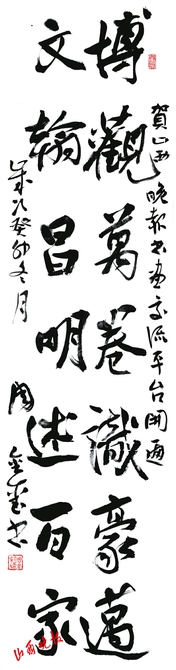 賀山西晚報書畫交流平台開通
博觀萬卷識豪邁
文翰昌明述百家
歲次癸卯冬月
山西晚報